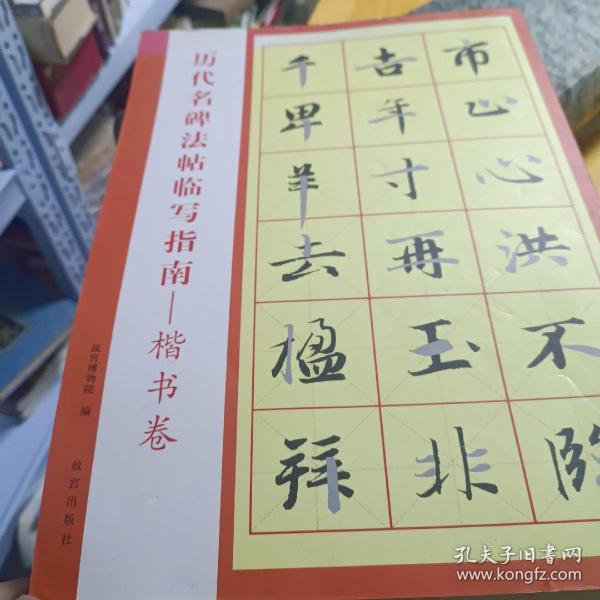 历代名碑法帖临写指南—楷书卷
故宫博物院 编
故宫出版社
千 古 市
卑 年 心
羊 寸 心
去 再 洪
楹 玉 不
拜 非 临
孔夫子旧书网
www.kongfz.com